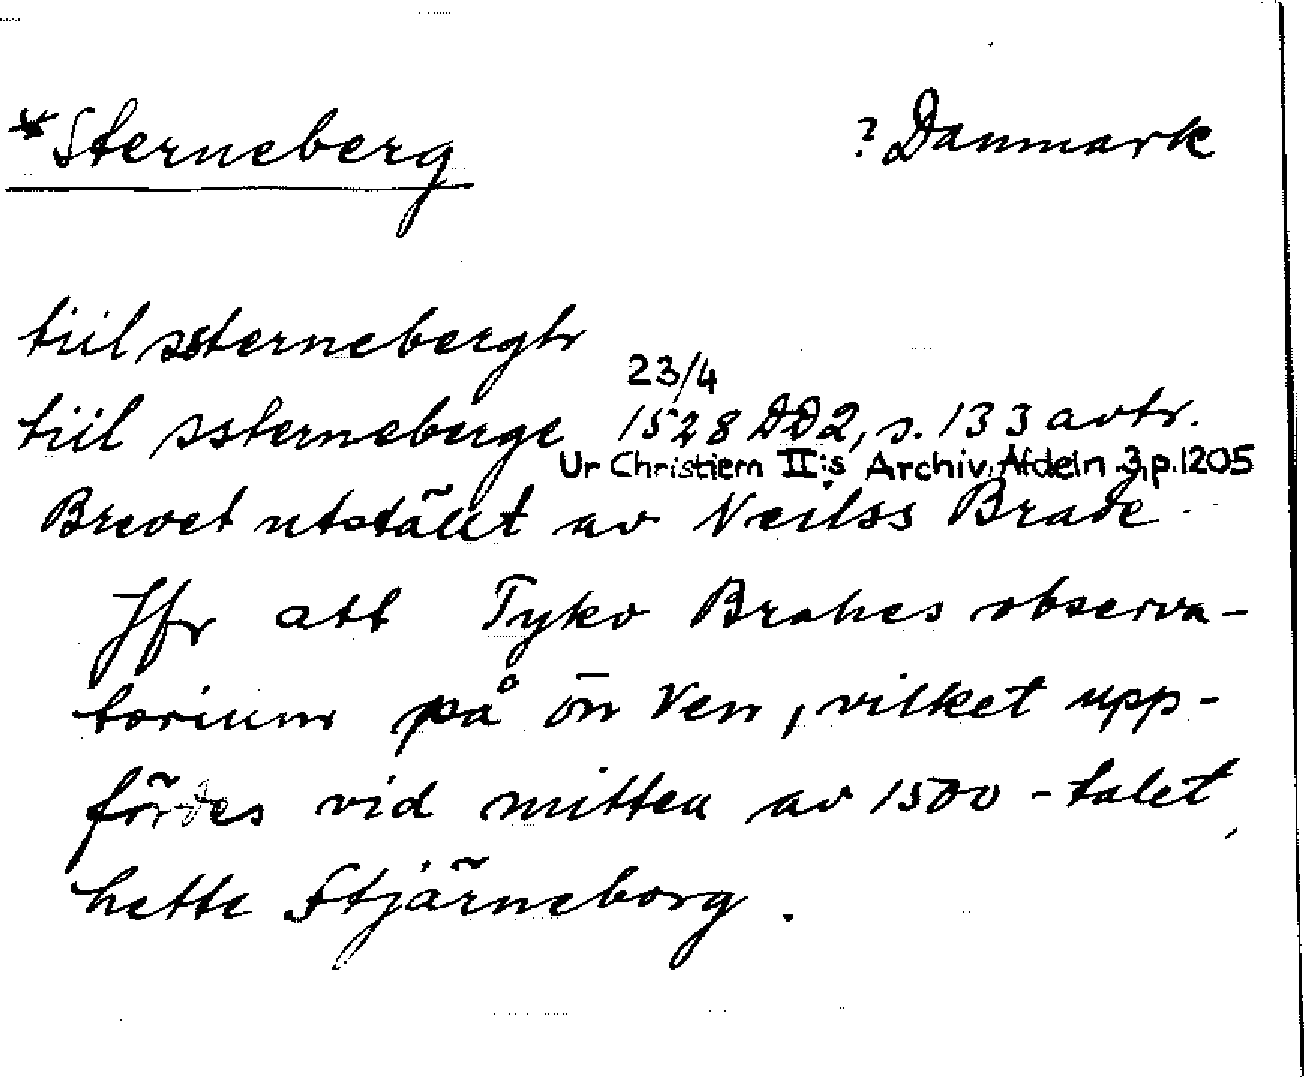 *Sterneberg ? Danmark
tiil ssternebergh
23/4
tiil ssterneberge 1528 DD2, s. 133 avtr.
Ur Christiern II:s Archiv, Afdeln 3, p. 1205
Brevet utställt av Neilss Brade
Jfr att Tyko Brahes observa-
torium på ön Ven, vilket upp-
fördes vid mitten av 1500-talet,
hette Stjärneborg.